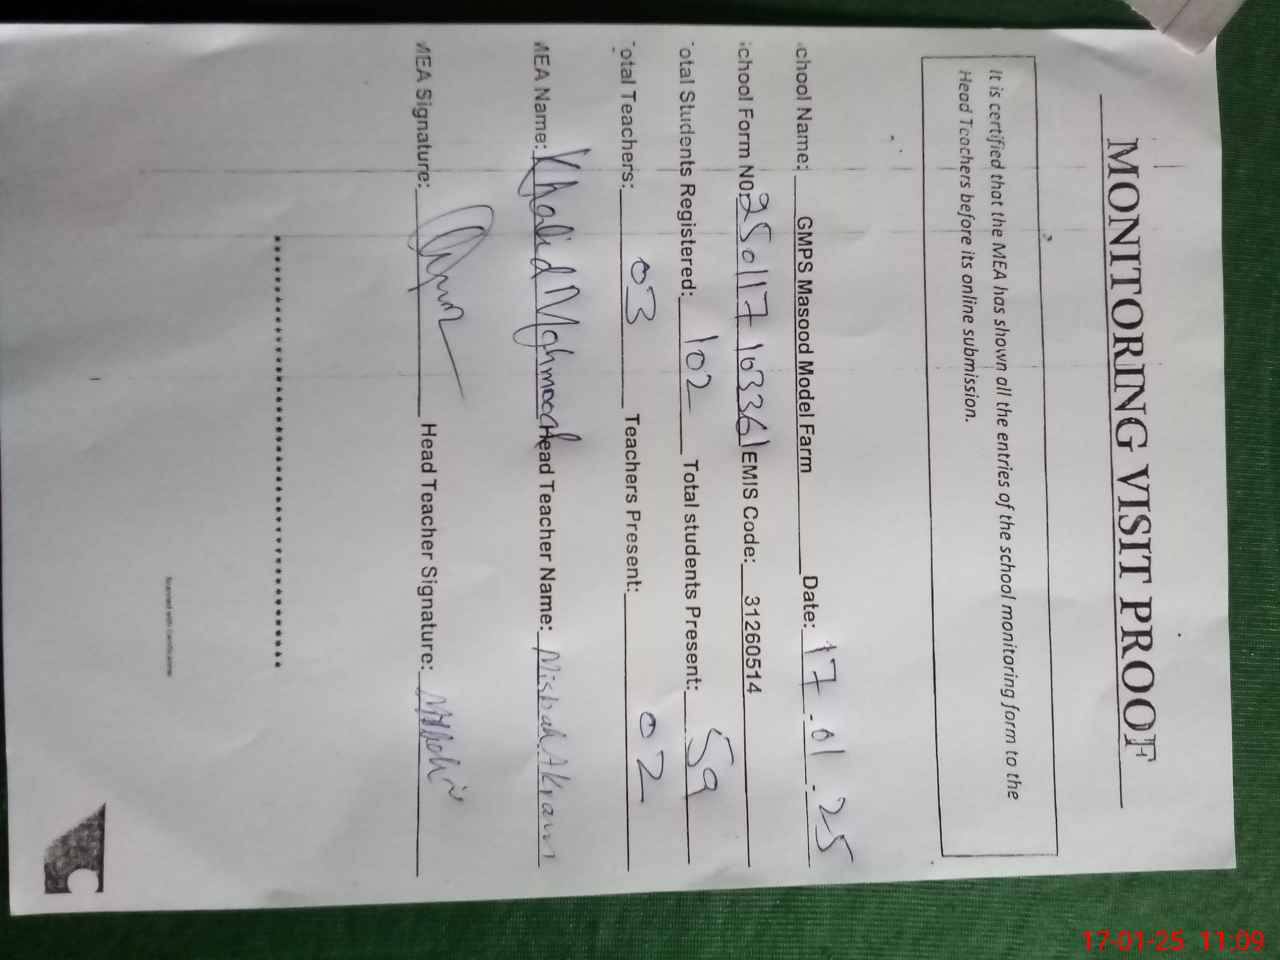 MONITORING VISIT PROOF
It is certified that the MEA has shown all the entries of the school monitoring form to the
Head Teachers before its online submission.
chool Name: GMPS Masood Model Farm Date: 17.01.25
chool Form N0: 250117103361 EMIS Code: 31260514
otal Students Registered: 102 Total students Present: 59
otal Teachers: 03 Teachers Present: 02
MEA Name: Khalid Mahmood Head Teacher Name: Misbah Akram
MEA Signature: Head Teacher Signature:
Scanned with CamScanner
17-01-25 11:09